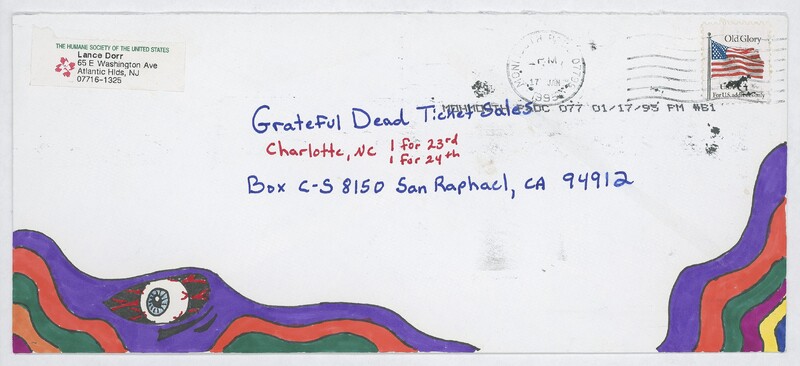 THE HUMANE SOCIETY OF THE UNITED STATES
Lance Dorr
65 E Washington Ave
Atlantic Hlds, NJ
07716-1325
P M
17 JAN
1995
Old Glory
For U.S. addresses only
MONMOUTH P&DC 077 01/17/95 PM #51
Grateful Dead Ticket Sales
Charlotte, NC 1 for 23rd
1 for 24th
Box C-S 8150 San Raphael, CA 94912